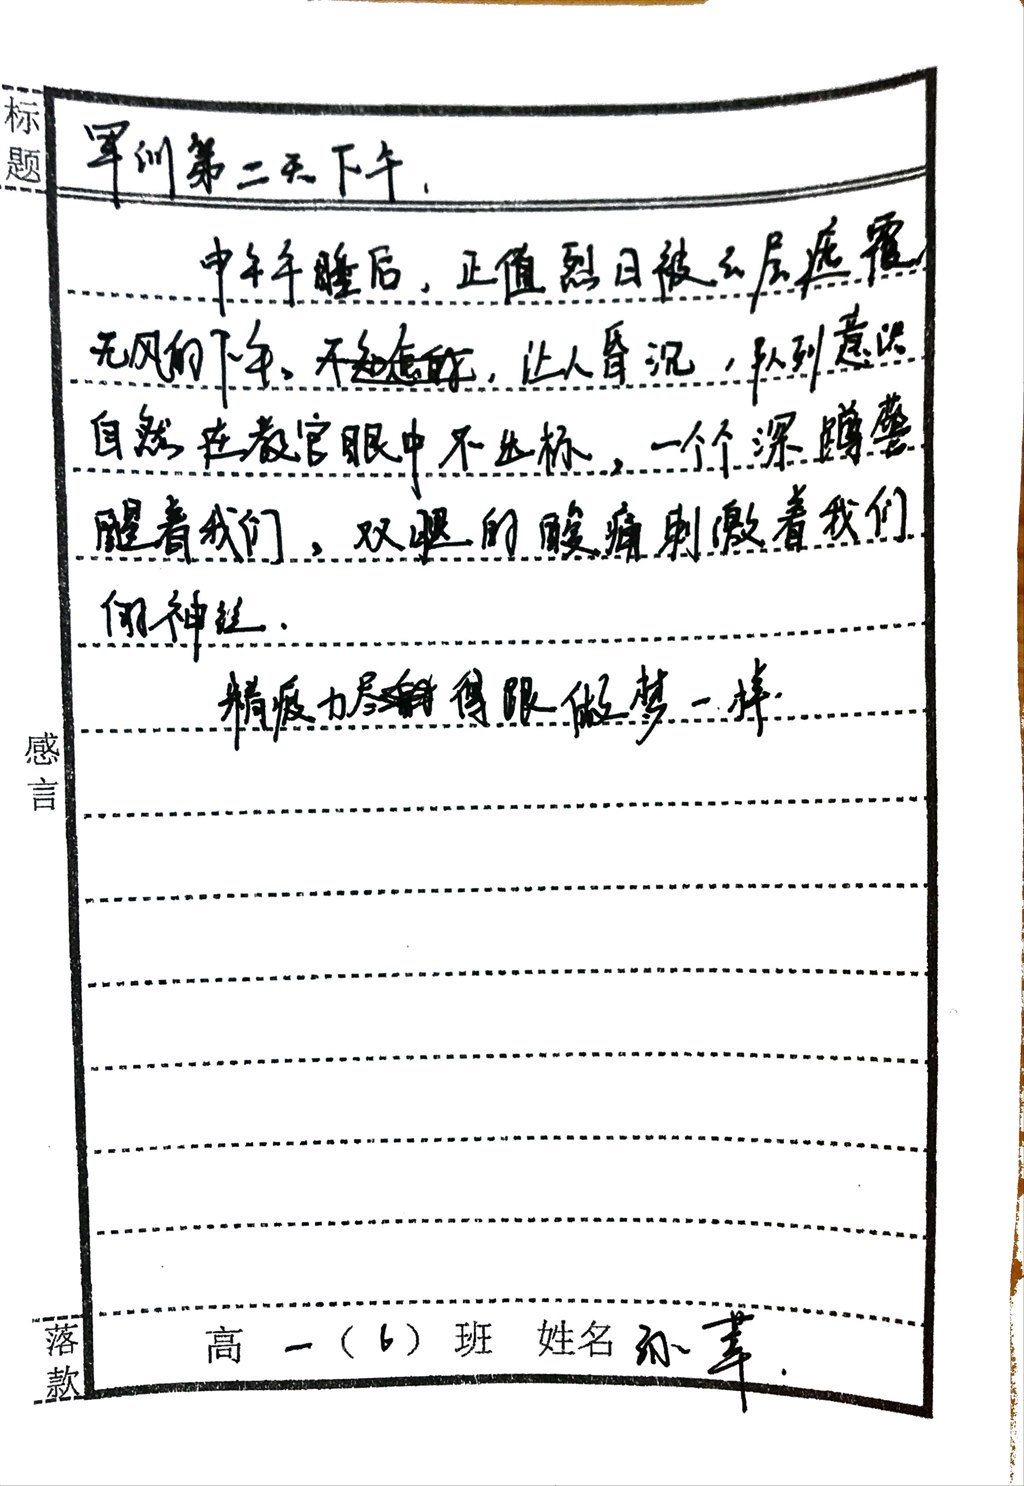 标题
军训第二天下午.
中午午睡后，正值烈日被云层遮覆
无风的下午。不知怎的，让人昏沉，队列意识
自然在教官眼中不达标，一个个深蹲警
醒着我们，双腿的酸痛刺激着我们
的神经.
精疲力尽得跟做梦一样.
感言
落款 高一（6）班 姓名 孙